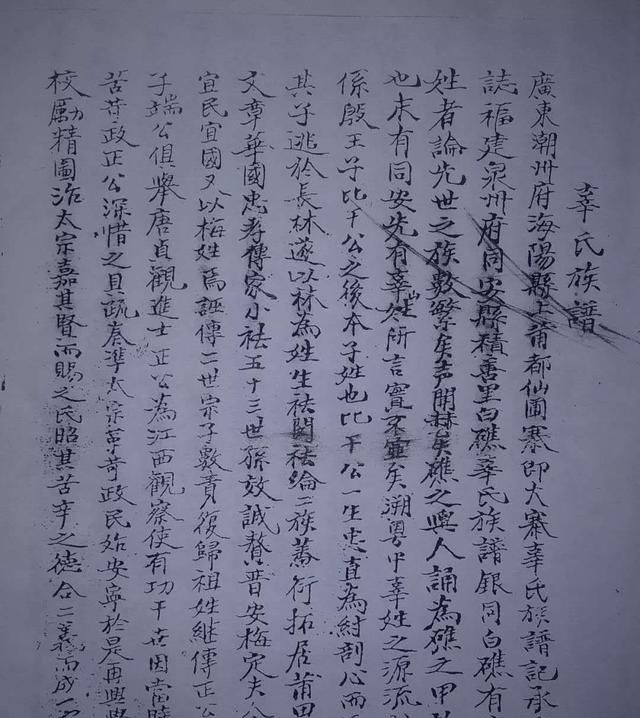 辜氏族譜
廣東潮州府海陽縣上莆都仙圃寨即大寨辜氏族譜記承
誌福建泉州府同安縣積善里白礁辜氏族譜銀同白礁有
姓者論先世之族數繁矣声開赫矣礁之與人誦為礁之甲
也未有同安先有辜姓所言實不虛矣溯粵中辜姓之源流
係殷王子比干公之後本子姓也比干公一生忠直為紂剖心而
其子逃於長林遂以林為姓生祛閗祛綸二族蕃衍拓居莆田
文章華國忠孝傳家小祛五十三世孫效誠贅晋安梅定夫公
宜民宜國又以梅姓為誣傳二世宗子數責復歸祖姓継傳正公
子端公俱舉唐貞觀進士正公為江西觀察使有功于世因當時
苦苛政正公深惜之具疏奏準太宗革苛政民始安寧於是再興學
校勵精圖治太宗嘉其賢而賜之氏昭其苦辛之德合二義而成一